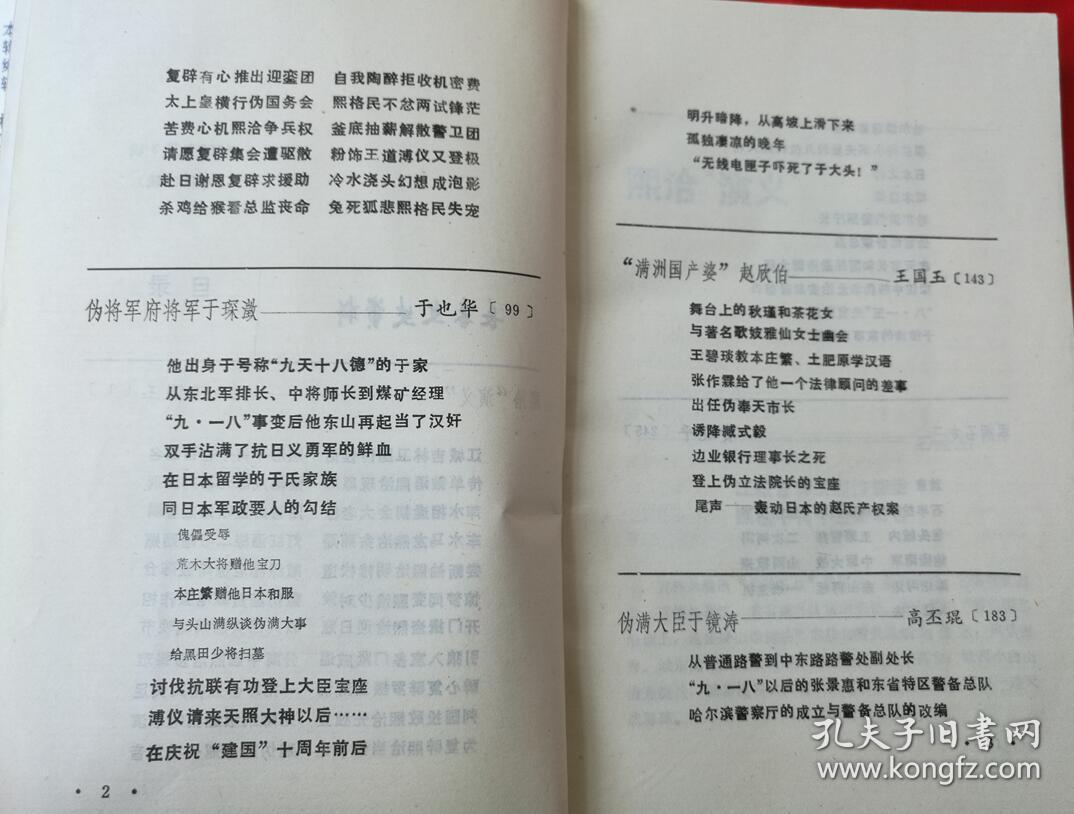 复辟有心推出迎銮团 自我陶醉拒收机密费
太上皇横行伪国务会 熙格民不忿两试锋茫
苦费心机熙洽争兵权 釜底抽薪解散警卫团
请愿复辟集会遭驱散 粉饰王道溥仪又登极
赴日谢恩复辟求援助 冷水浇头幻想成泡影
杀鸡给猴看总监丧命 兔死狐悲熙格民失宠
伪将军府将军于琛澂——于也华〔99〕
他出身于号称“九天十八德”的于家
从东北军排长、中将师长到煤矿经理
“九·一八”事变后他东山再起当了汉奸
双手沾满了抗日义勇军的鲜血
在日本留学的于氏家族
同日本军政要人的勾结
傀儡受辱
荒木大将赠他宝刀
本庄繁赠他日本和服
与头山满纵谈伪满大事
给黑田少将扫墓
讨伐抗联有功登上大臣宝座
溥仪请来天照大神以后……
在庆祝“建国”十周年前后
· 2 ·
明升暗降，从高坡上滑下来
孤独凄凉的晚年
“无线电匣子吓死了于大头！”
“满洲国产婆”赵欣伯——王国玉〔143〕
舞台上的秋瑾和茶花女
与著名歌妓雅仙女士幽会
王碧琰教本庄繁、土肥原学汉语
张作霖给了他一个法律顾问的差事
出任伪奉天市长
诱降臧式毅
边业银行理事长之死
登上伪立法院长的宝座
尾声——轰动日本的赵氏产权案
伪满大臣于镜涛——高丕琨〔183〕
从普通路警到中东路路警处副处长
“九·一八”以后的张景惠和东省特区警备总队
哈尔滨警察厅的成立与警备总队的改编
孔夫子旧书网
www.kongfz.com